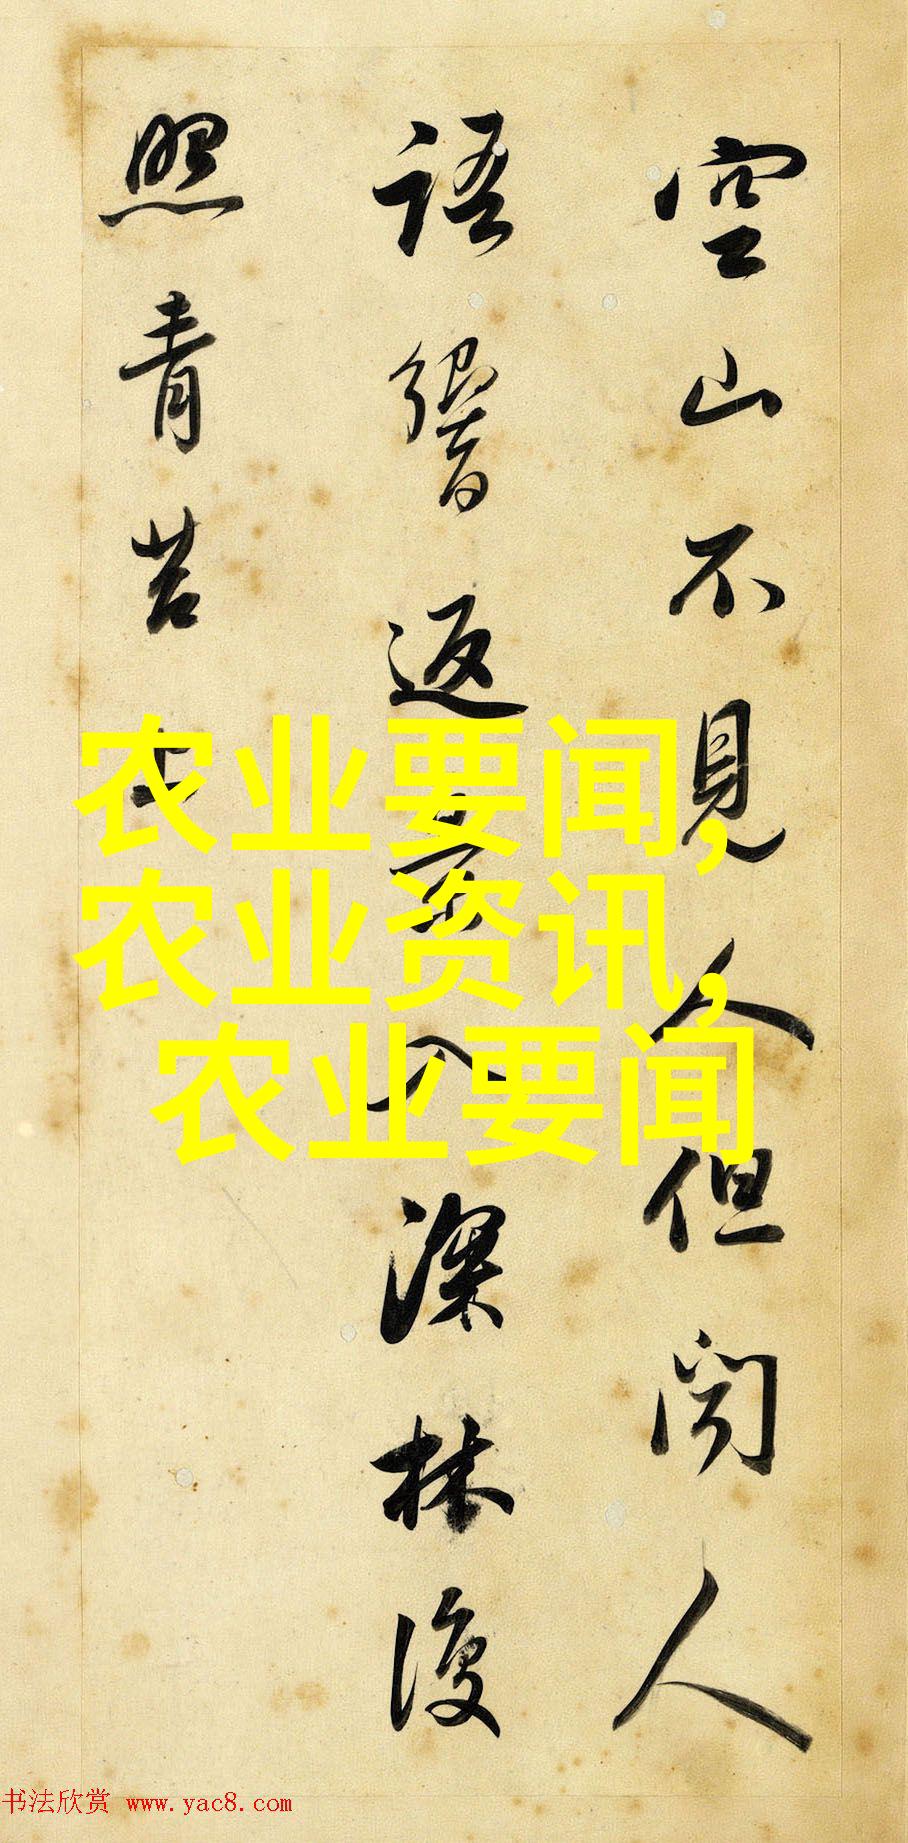 空山不見人但聞人
語響返景入深林復
照青苔上
农业要闻,
农业资讯,
农业要闻
书法欣赏 www.yac8.com